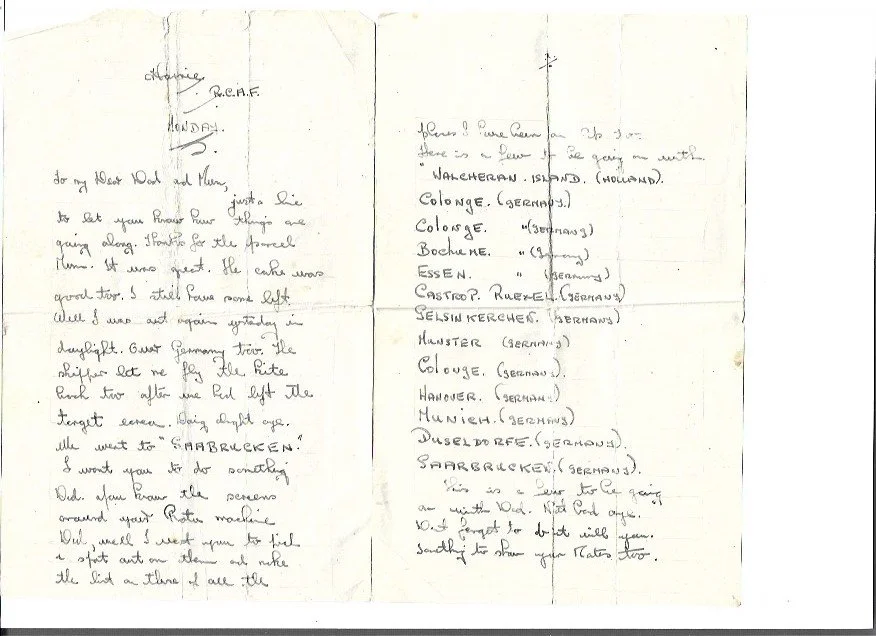 Home
R.C.A.F.
MONDAY.
To my Dear Dad and Mum,
just a line
to let you know how things are
going along. Thanks for the parcel
Mum. It was great. The cake was
good too. I still have some left.
Well I was out again yesterday in
daylight. Over Germany too. The
skipper let me fly the kite
back too after we had left the
target area. Doing alright aye.
We went to "SAABRUCKEN."
I want you to do something
Dad. You know the screens
around your machine
Dad, well I want you to pick
a spot out on them and make
the list on there of all the
2.
places I have been on Up to.
Here is a few to be going on with
"WALCHERAN. ISLAND. (HOLLAND).
COLONGE. (GERMANY.)
COLONGE. "(GERMANY)
BOCHEME. "(Germany)
ESSEN. " (GERMANY)
CASTROP. RUEXEL. (GERMANY)
GELSINKERCHEN. (GERMANY)
MUNSTER (GERMANY)
COLONGE. (GERMANY).
HANOVER. (GERMANY)
MUNICH. (GERMANY)
DUSELDORFE. (GERMANY).
SAARBRUCKEN. (GERMANY).
This is a few to be going
on with Dad. Not bad aye."
Don't forget to do it will you.
Something to show your Mates too.